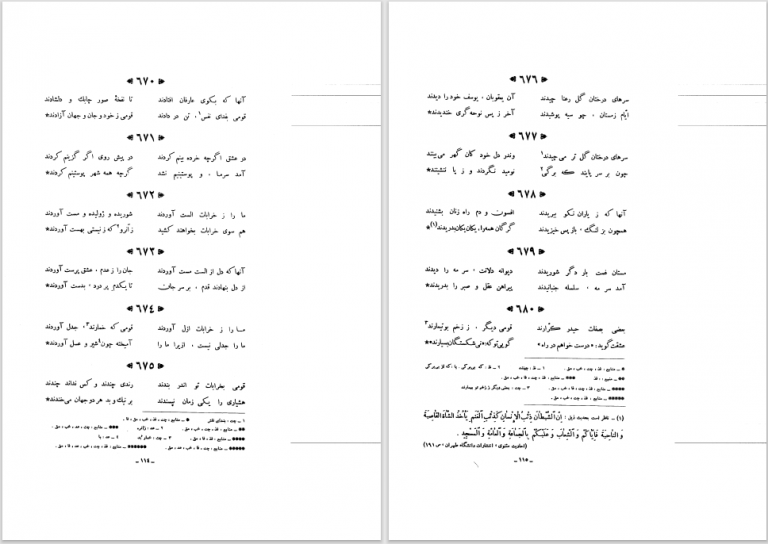 «۶۷۰»
آنها که بکوی عارفان افتادند تا نفخهٔ صور چابک و دلشادند
قومی بفدای نفس¹ تن در دادند قومی ز خود و جان و جهان آزادند*
«۶۷۱»
در عشق اگرچه خرده بینم کردند در پیش روی اگر گزینم کردند
آمد سرما ، و پوستینم نشد گرچه همه شهر پوستینم کردند*
«۶۷۲»
ما را ز خرابات الست آوردند شوریده و ژولیده و مست آوردند
هم سوی خرابات بخواهند کشید زآنرو² که ز نیستی بهست آوردند*
«۶۷۳»
آنها که دل از الست مست آوردند جان را ز عدم ، عشق پرست آوردند
از دل بنهادند قدم ، بر سر جان تا یکدم پر درد ، بدست آوردند*
«۶۷۴»
ما را ز خرابات ازل آوردند قومی که خمارند³ جدل آوردند
ما را جدلی نیست ، ازیرا ما را آمیخته چون⁴ شیر و عسل آوردند*
«۶۷۵»
قومی بخرابات تو اندر بندند رندی چندند و کس نداند چندند
هشیاری را یکی زمان نپسندند بر نیک و بد هر دو جهان میخندند*
ـ ۱۱۴ ـ
«۶۷۶»
سرهای درختان گل رعنا چیدند آن یعقوبان ، یوسف خود را دیدند
ایّام زمستان ، چو سیه پوشیدند آخر ز پس نوحه گری خندیدند*
«۶۷۷»
سرهای درختان گل تر می چیدند¹ وندر دل خود کان گهر می بینند
چون بر سر پایند که برگی² نومید نگردند و ز پا ننشینند*
«۶۷۸»
آنها که ز یاران نکو ببریدند افسون و دم راه زنان بشنیدند
همچون بز لنگ ، باز پس خیزیدند گرگان همه را، یکان یکان بدریدند(۱)*
«۶۷۹»
مستان غمت بار دگر شوریدند دیوانه دلانت ، سر مه را دیدند
آمد سر مه ، سلسله جنبانیدند پیراهن عقل و صبر را بدریدند*
«۶۸۰»
بعضی بصفات حیدر کرّارند قومی دیگر ، ز زخم بوتیمارند³
عشقت گوید: «درست خواهم در راه» گویی تو که: «نی شکستگان بسیارند»*
(۱) ـ ناظر است بحدیث ذیل : اِنَّ الشَّیْطَانَ ذِئْبُ الْاِنْسَانِ کَذِئْبِ الْغَنَمِ یَأْخُذُ الشَّاةَ الْقَاصِیَةَ
وَ النَّاحِیَةَ فَاِیَّاکُمْ وَ الشِّعَابَ وَ عَلَیْکُمْ بِالْجَمَاعَةِ وَ الْعَامَّةِ وَ الْمَسْجِدِ .
(احادیث مثنوی ، انتشارات دانشگاه طهران ، ص ۱۹۱)
ـ ۱۱۵ ـ